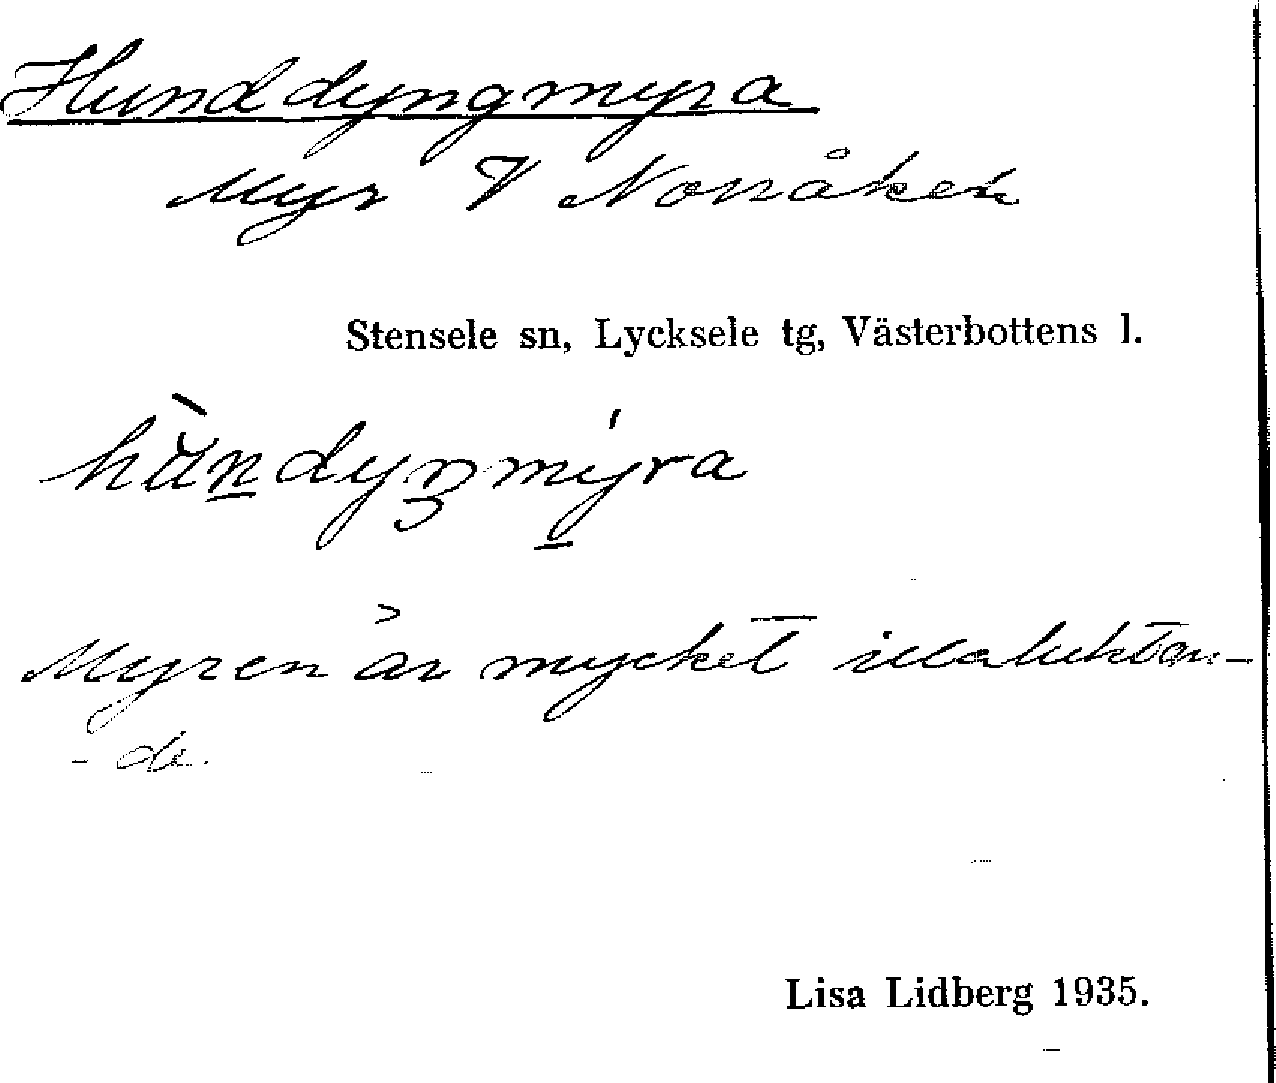 Hunddyngmyra
Myr V Norråker
Stensele sn, Lycksele tg, Västerbottens l.
Myren är mycket illaluktan-
-de.
Lisa Lidberg 1935.